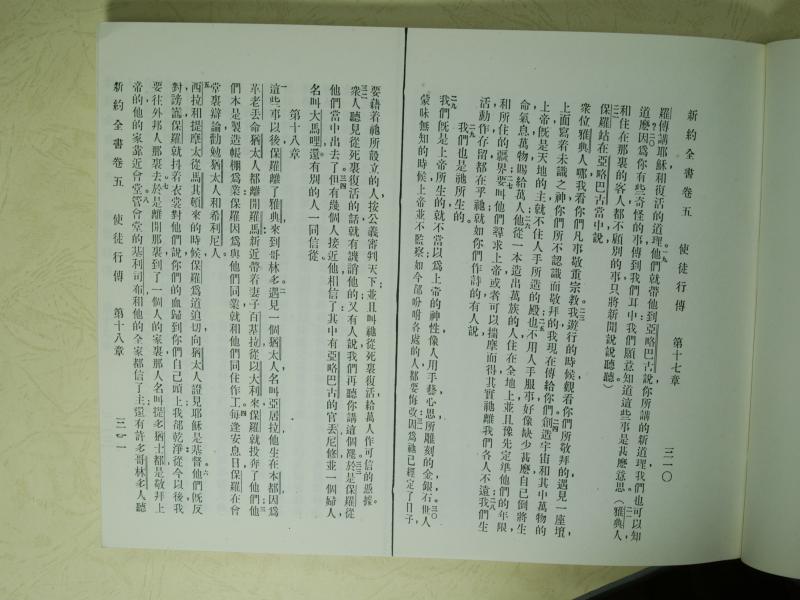 新約全書卷五　使徒行傳　第十七章　三一〇
羅傳講耶穌和復活的道理他們就帶他到亞略巴古說你所講的新道理我們也可以知
道麽因爲你有些奇怪的事傳到我們耳中我們願意知道這些事是甚麽意思（雅典人
和住在那裏的客人都不顧別的事只將新聞說說聽聽）
保羅站在亞略巴古當中說
衆位雅典人哪我看你們凡事敬重宗教我遊行的時候觀看你們所敬拜的遇見一座壇
上面寫着未識之神你們所不認識而敬拜的我現在傳給你們創造宇宙和其中萬物的
上帝既是天地的主就不住人手所造的殿也不用人手服事好像缺少甚麽自己倒將生
命氣息萬物賜給萬人他從一本造出萬族的人住在全地上並且豫先定準他們的年限
和所住的疆界要叫他們尋求上帝或者可以揣摩而得其實祂離我們各人不遠我們生
活動作存留都在乎祂就如你們作詩的有人說
我們也是祂所生的
我們既是上帝所生的就不當以爲上帝的神性像人用手藝心思所雕刻的金銀石世人
蒙昧無知的時候上帝並不監察如今卻吩咐各處的人都要悔改因爲祂已經定了日子
要藉着祂所設立的人按公義審判天下並且叫祂從死裏復活給萬人作可信的憑據
衆人聽見從死裏復活的話就有譏誚他的又有人說我們再聽你講這個罷於是保羅從
他們當中出去了但有幾個人接近他相信了其中有亞略巴古的官丟尼修並一個婦人
名叫大馬哩還有別的人一同信從
第十八章
這些事以後保羅離了雅典來到哥林多遇見一個猶太人名叫亞居拉他生在本都因爲
革老丟命猶太人都離開羅馬新近帶着妻子百基拉從以大利來保羅就投奔了他們他
們本是製造帳棚爲業保羅因爲與他們同業就和他們同住作工每逢安息日保羅在會
堂裏辯論勸勉猶太人和希利尼人
西拉和提摩太從馬其頓來的時候保羅爲道迫切向猶太人證見耶穌是基督他們既反
對謗讟保羅就抖着衣裳對他們說你們的血歸到你們自己頭上我卻乾淨從今以後我
要往外邦人那裏去於是離開那裏到了一個人的家裏那人名叫提多猶士都是敬拜上
帝的他的家靠近會堂管會堂的基利司布和他的全家都信了主還有許多哥林多人聽
新約全書卷五　使徒行傳　第十八章　三一一